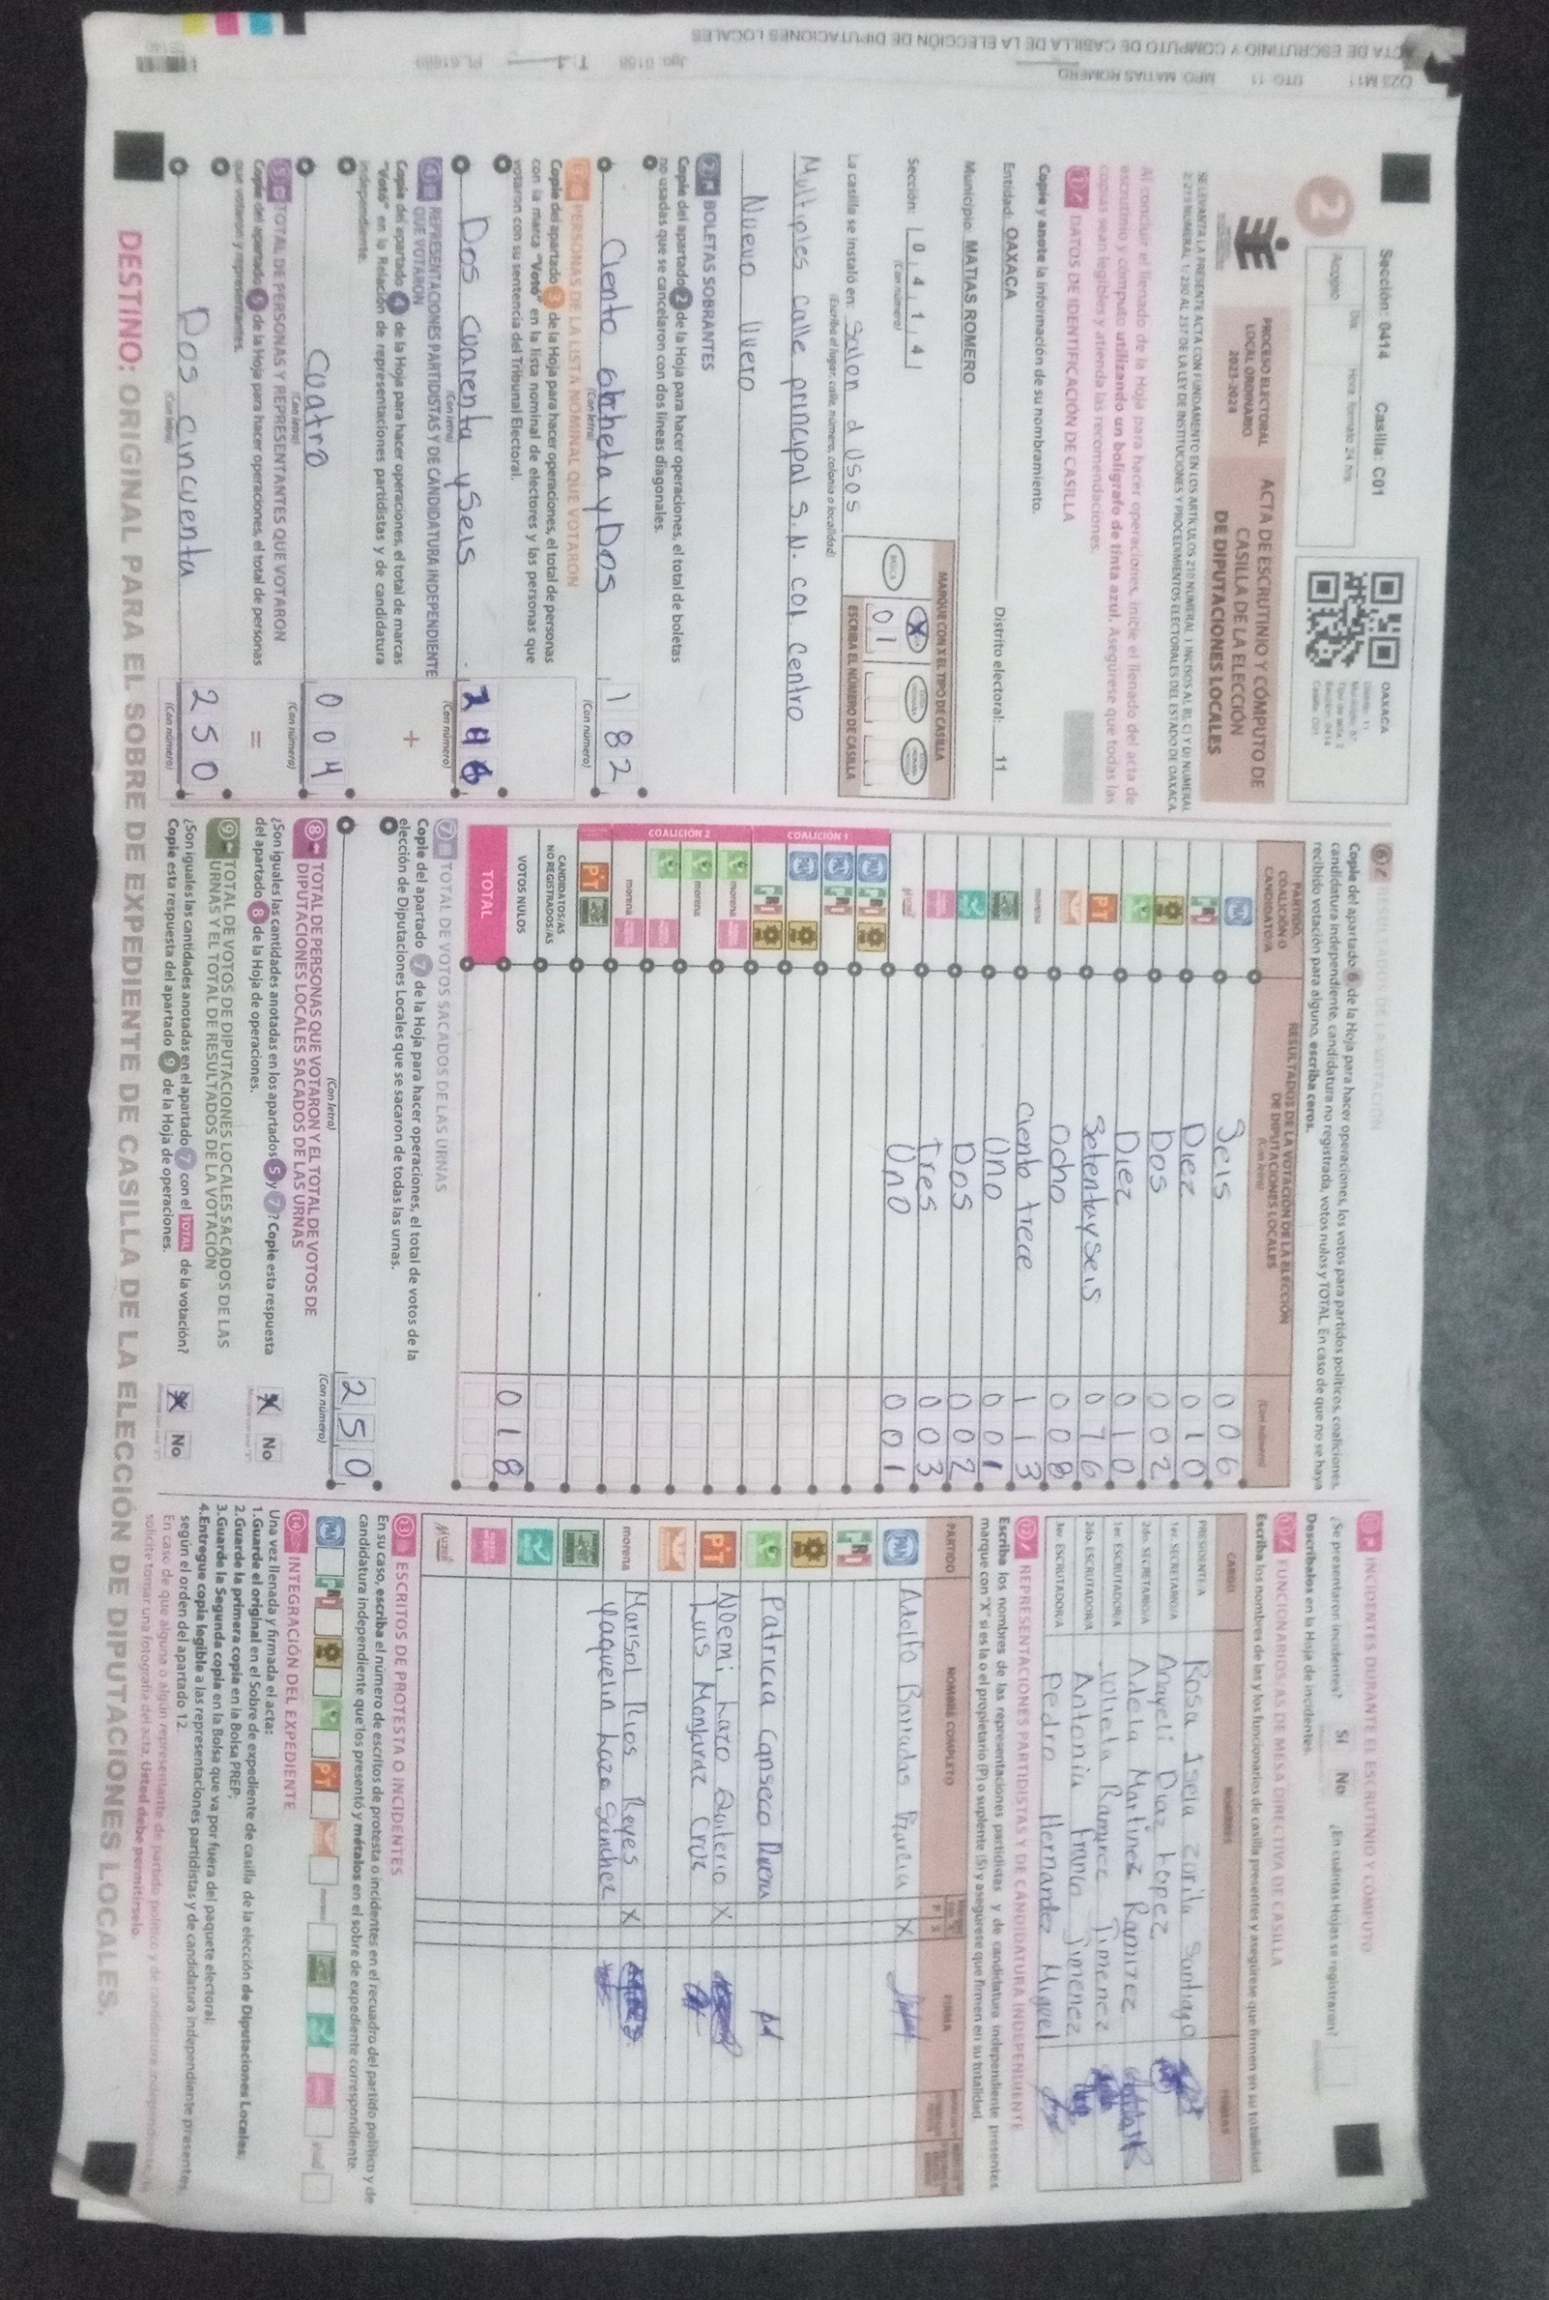 ACTA DE ESCRUTINIO Y CÓMPUTO DE CASILLA DE LA ELECCIÓN DE DIPUTACIONES LOCALES
023 M11 DTO. 11 MPO. MATIAS ROMERO
Sección: 0414 Casilla: C01
2
Acopio
Día
Hora, formato 24 hrs.
OAXACA
Distrito: 11
Sección: 0414
Casilla: C01
PROCESO ELECTORAL
LOCAL ORDINARIO
2023-2024
ACTA DE ESCRUTINIO Y CÓMPUTO DE
CASILLA DE LA ELECCIÓN
DE DIPUTACIONES LOCALES
SE LEVANTA LA PRESENTE ACTA CON FUNDAMENTO EN LOS ARTÍCULOS 210 NUMERAL 1 INCISOS A), B), C) Y D) NUMERAL
2; 219 NUMERAL 1; 230 AL 237 DE LA LEY DE INSTITUCIONES Y PROCEDIMIENTOS ELECTORALES DEL ESTADO DE OAXACA.
Al concluir el llenado de la Hoja para hacer operaciones, inicie el llenado del acta de
escrutinio y cómputo utilizando un bolígrafo de tinta azul. Asegúrese que todas las
copias sean legibles y atienda las recomendaciones.
1 DATOS DE IDENTIFICACIÓN DE CASILLA
Copie y anote la información de su nombramiento.
Entidad: OAXACA Distrito electoral: 11
Municipio: MATIAS ROMERO
Sección: 0 4 1 4
(Con número)
MARQUE CON X EL TIPO DE CASILLA
X
ESCRIBA EL NÚMERO DE CASILLA
0 1
La casilla se instaló en: Salon d Usos
(Escriba el lugar: calle, número, colonia o localidad)
Multiples calle principal S.N. col. centro
Nuevo Uvero
2 BOLETAS SOBRANTES
Copie del apartado 2 de la Hoja para hacer operaciones, el total de boletas
no usadas que se cancelaron con dos líneas diagonales.
Ciento ochenta y Dos 1 8 2
(Con letra) (Con número)
3 PERSONAS DE LA LISTA NOMINAL QUE VOTARON
Copie del apartado 3 de la Hoja para hacer operaciones, el total de personas
con la marca "Votó" en la lista nominal de electores y las personas que
votaron con su sentencia del Tribunal Electoral.
Dos cuarenta y Seis 2 4 6
(Con letra) (Con número)
4 REPRESENTACIONES PARTIDISTAS Y DE CANDIDATURA INDEPENDIENTE
QUE VOTARON
Copie del apartado 4 de la Hoja para hacer operaciones, el total de marcas
"Votó" en la Relación de representaciones partidistas y de candidatura
independiente.
+
Cuatro 0 0 4
(Con letra) (Con número)
5 TOTAL DE PERSONAS Y REPRESENTANTES QUE VOTARON
Copie del apartado 5 de la Hoja para hacer operaciones, el total de personas
que votaron y representantes.
=
Dos cincuenta 2 5 0
(Con letra) (Con número)
6 RESULTADOS DE LA VOTACIÓN
Copie del apartado 6 de la Hoja para hacer operaciones, los votos para partidos políticos, coaliciones,
candidatura independiente, candidatura no registrada, votos nulos y TOTAL. En caso de que no se haya
recibido votación para alguno, escriba ceros.
PARTIDO, COALICIÓN O CANDIDATO/A
RESULTADOS DE LA VOTACIÓN DE LA ELECCIÓN
DE DIPUTACIONES LOCALES
(Con letra) (Con número)
PAN Seis 0 0 6
PRI Diez 0 1 0
PRD Dos 0 0 2
Diez 0 1 0
PT Setenta y seis 0 7 6
Ocho 0 0 8
morena ciento trece 1 1 3
Uno 0 0 1
Dos 0 0 2
Tres 0 0 3
Uno 0 0 1
COALICIÓN 1
PAN PRI PRD
PAN PRI
PAN PRD
PRI PRD
COALICIÓN 2
morena
morena
morena
PT
CANDIDATOS/AS
NO REGISTRADOS/AS
VOTOS NULOS 0 1 8
TOTAL
7 TOTAL DE VOTOS SACADOS DE LAS URNAS
Copie del apartado 7 de la Hoja para hacer operaciones, el total de votos de la
elección de Diputaciones Locales que se sacaron de todas las urnas.
2 5 0
(Con letra) (Con número)
8 TOTAL DE PERSONAS QUE VOTARON Y EL TOTAL DE VOTOS DE
DIPUTACIONES LOCALES SACADOS DE LAS URNAS
¿Son iguales las cantidades anotadas en los apartados 5 y 7? Copie esta respuesta
del apartado 8 de la Hoja de operaciones.
X No
9 TOTAL DE VOTOS DE DIPUTACIONES LOCALES SACADOS DE LAS
URNAS Y EL TOTAL DE RESULTADOS DE LA VOTACIÓN
¿Son iguales las cantidades anotadas en el apartado 7 con el TOTAL de la votación?
Copie esta respuesta del apartado 9 de la Hoja de operaciones.
X No
10 INCIDENTES DURANTE EL ESCRUTINIO Y CÓMPUTO
¿Se presentaron incidentes? Sí No ¿En cuántas Hojas se registraron?
Descríbalos en la Hoja de incidentes.
11 FUNCIONARIOS/AS DE MESA DIRECTIVA DE CASILLA
Escriba los nombres de las y los funcionarios de casilla presentes y asegúrese que firmen en su totalidad.
CARGO NOMBRES FIRMAS
PRESIDENTE/A Rosa Isela Zorila Santiago
1er. SECRETARIO/A Anayeli Diaz Lopez
2do. SECRETARIO/A Adela Martinez Ramirez
1er. ESCRUTADOR/A Julieta Ramirez Jimenez
2do. ESCRUTADOR/A Antonia Franco Jimenez
3er. ESCRUTADOR/A Pedro Hernandez Miguel
12 REPRESENTACIONES PARTIDISTAS Y DE CANDIDATURA INDEPENDIENTE
Escriba los nombres de las representaciones partidistas y de candidatura independiente presentes,
marque con "X" si es la o el propietario (P) o suplente (S) y asegúrese que firmen en su totalidad.
PARTIDO NOMBRE COMPLETO P S FIRMA
PAN Adolfo Barradas X
PRI
PRD
Patricia Canseco
PT Noemi Lazo Quiterio X
Luis Monjaraz Cruz
morena Marisol Rios Reyes X
Yaquelin Lazo Sanchez
13 ESCRITOS DE PROTESTA O INCIDENTES
En su caso, escriba el número de escritos de protesta o incidentes en el recuadro del partido político y de
candidatura independiente que los presentó y métalos en el sobre de expediente correspondiente.
PAN PRI PRD PT morena
14 INTEGRACIÓN DEL EXPEDIENTE
Una vez llenada y firmada el acta:
1.Guarde el original en el Sobre de expediente de casilla de la elección de Diputaciones Locales;
2.Guarde la primera copia en la Bolsa PREP;
3.Guarde la Segunda copia en la Bolsa que va por fuera del paquete electoral;
4.Entregue copia legible a las representaciones partidistas y de candidatura independiente presentes,
según el orden del apartado 12.
En caso de que alguna o algún representante de partido político y de candidatura independiente
solicite tomar una fotografía del acta, Usted debe permitírselo.
DESTINO: ORIGINAL PARA EL SOBRE DE EXPEDIENTE DE CASILLA DE LA ELECCIÓN DE DIPUTACIONES LOCALES.